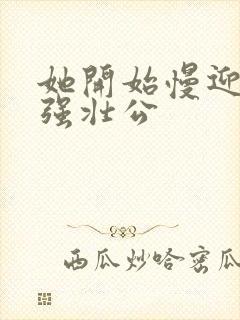 她開始慢迎
强壮公
西瓜炒哈密瓜